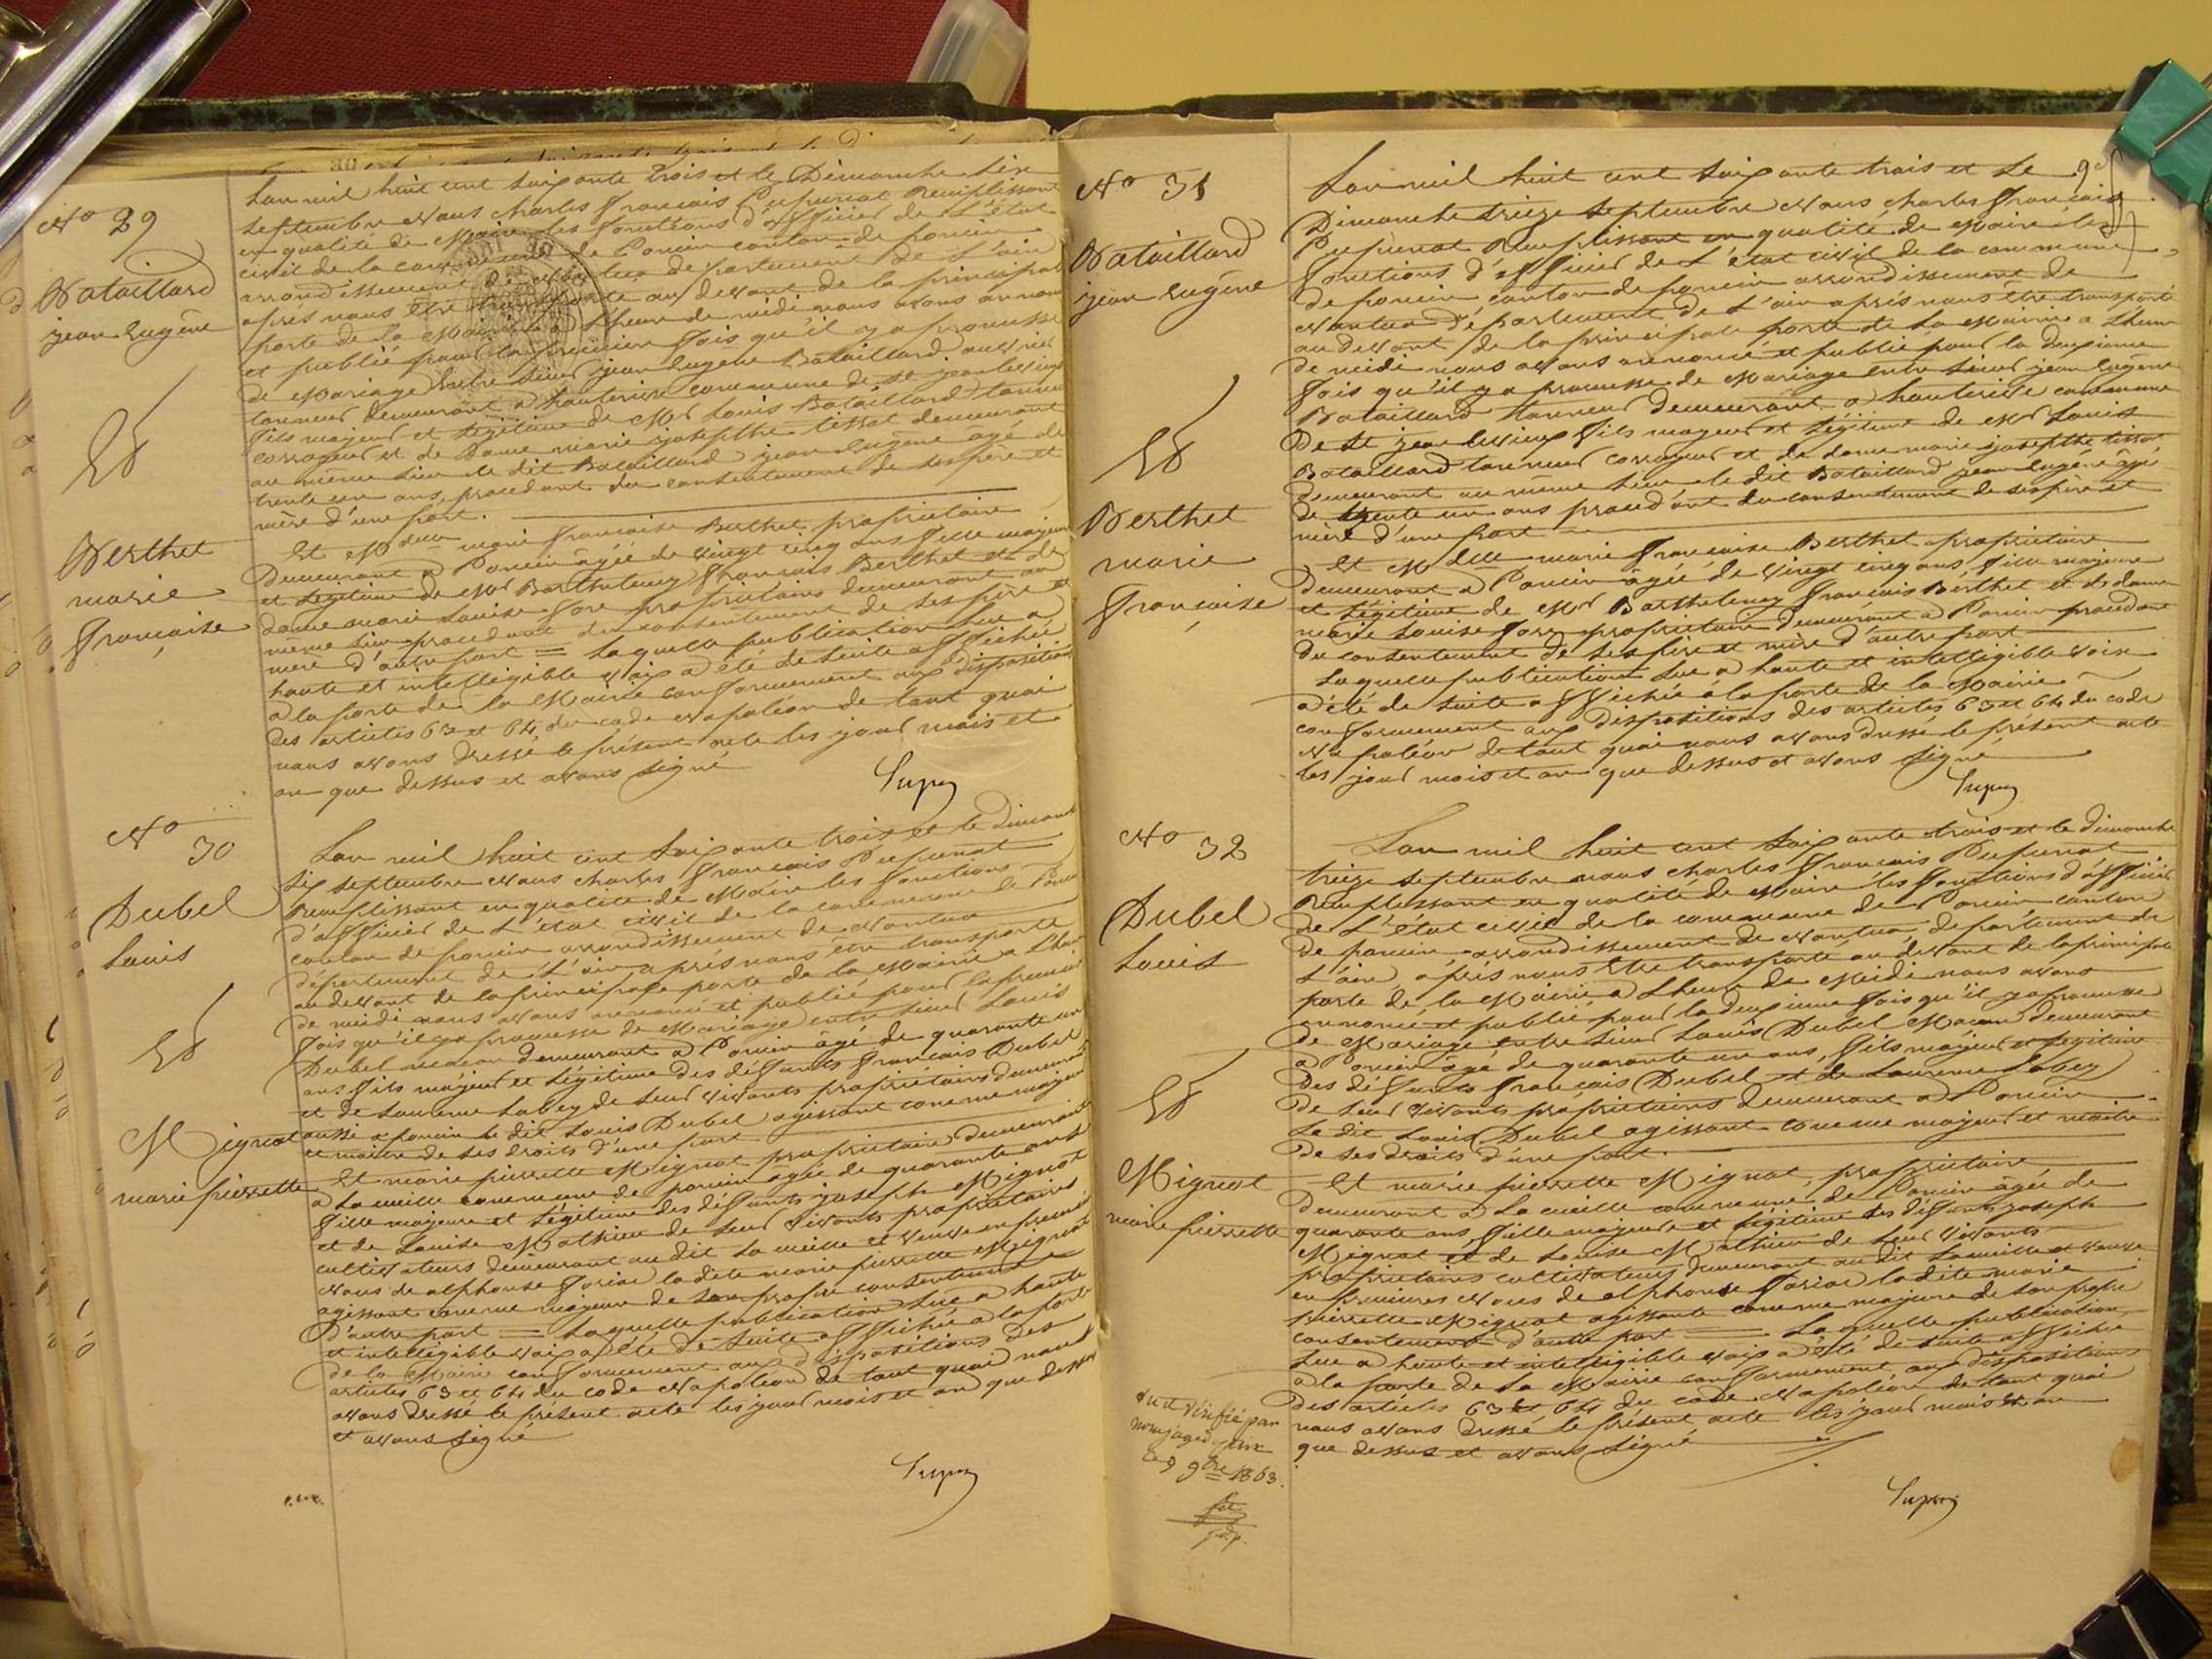 No 29
Bataillard
jean Eugène
Et
Berthet
marie
françoise
L'an mil huit cent soixante trois et le Dimanche six
septembre Nous charles françois remplissant
en qualité de Maire les fonctions d'officier de L'état
civil de la commune de Poncin canton de poncin
arrondissement de Nantua departement de L'ain
après nous être transporté au devant de la principale
porte de la Mairie a L'heure de midi nous avons annoncé
et publié pour la première fois qu'il y a promesse
de Mariage Entre sieur jean Eugène Bataillard ouvrier
tanneur demeurant a hauterive commune de st jean le vieux
fils majeur et légitime de Mr Louis Bataillard tanneur
corroyeur et de Dame marie josephte tissot demeurant
au même lieu le dit Bataillard jean Eugène âgé de
trente un ans, procedant du consentement de ses père et
mère d'une part.
Et Mdlle marie françoise Berthet propriétaire
Demeurant a Poncin âgée de vingt cinq ans fille majeure
et légitime de Mr Barthelemy françois Berthet et de
dame marie Louise fore propriétaires demeurant au
même lieu procedant du consentement de ses père et
mère d'autre part = Laquelle publication lue a
haute et intelligible voix a été de suite affichée
a la porte de la Mairie conformement aux dispositions
des articles 63 et 64 du code Napoléon de tout quoi
nous avons dressé le présent acte les jour mois et
an que dessus et avons signé
No 30
Dubel
Louis
Et
Mignot
marie pierrette
L'an mil huit cent soixante trois et le dimanche
six septembre Nous charles françois
Remplissant en qualité de Maire les fonctions
d'officier de L'état civil de la commune de Poncin
canton de poncin arrondissement de Nantua
département de L'ain après nous être transporté
au devant de la principale porte de la Mairie a L'heure
de midi nous avons annoncé et publié pour la première
fois qu'il y a promesse de Mariage entre sieur Louis
Dubel maçon demeurant a Poncin âgé de quarante un
ans fils majeur et légitime des défunts françois Dubel
et de Laurence Labey de leur vivants propriétaires demeurant
aussi a poncin le dit Louis Dubel agissant comme majeur
et maitre de ses droits d'une part
Et marie pierrette Mignot propriétaire demeurant
a La cueille commune de poncin âgée de quarante ans
fille majeure et légitime des défunts joseph Mignot
et de Louise Mathieu de leur vivants propriétaires
cultivateurs demeurant au dit La cueille et veuve en première
Nous de alphonse ladite marie pierrette Mignot
agissant comme majeure de son propre consentement
d'autre part = Laquelle publication lue a haute
et intelligible voix a été de suite affichée a la porte
de la Mairie conformement aux dispositions des
articles 63 et 64 du code Napoléon de tout quoi nous
avons dressé le présent acte les jour mois et an que dessus
et avons signé
No 31
Bataillard
jean Eugène
Et
Berthet
marie
françoise
L'an mil huit cent soixante trois et le
Dimanche treize septembre Nous charles françois
Remplissant en qualité de Maire les
fonctions d'officier de L'état civil de la commune
de poncin canton de poncin arrondissement de
Nantua Département de L'ain après nous être transporté
au devant de la principale porte de la Mairie a L'heure
de midi nous avons annoncé et publié pour la deuxieme
fois qu'il y a promesse de Mariage entre sieur jean Eugène
Bataillard tanneur demeurant a hauterive commune
De st jean le vieux fils majeur et légitime de Mr Louis
Bataillard tanneur corroyeur et de dame marie josephte tissot
Demeurant au même lieu le dit Bataillard jean Eugène âgé
de trente un ans procedant du consentement de ses père et
mère d'une part
Et Mdlle marie françoise Berthet propriétaire
demeurant a Poncin âgée de vingt cinq ans, fille majeure
et légitime de Mr Barthelemy françois Berthet et de dame
marie Louise fore propriétaire demeurant a Poncin procedant
du consentement de ses père et mère d'autre part
Laquelle publication lue a haute et intelligible voix
a été de suite affichée a la porte de la Mairie
conformement aux dispositions des articles 63 et 64 du code
Napoléon de tout quoi nous avons dressé le présent acte
les jour mois et an que dessus et avons signé
No 32
Dubel
Louis
Et
Mignot
marie pierrette
L'an mil huit cent soixante trois et le dimanche
treize septembre nous charles françois
Remplissant en qualité de Maire les fonctions d'officier
de L'état civil de la commune de Poncin canton
de poncin arrondissement de Nantua, departement de
L'ain, après nous être transporté au devant de la principale
porte de la Mairie a L'heure de Midi nous avons
annoncé et publié pour la deuxieme fois qu'il y a promesse
de Mariage entre sieur Louis Dubel Maçon demeurant
a Poncin âgé de quarante un ans, fils majeur et légitime
des défunts françois Dubel et de Laurence Labey
de leur vivants propriétaires demeurant a Poncin
le dit Louis Dubel agissant comme majeur et maitre
de ses droits d'une part.
Et marie pierrette Mignot, propriétaire
demeurant a La cueille commune de Poncin âgée de
quarante ans, fille majeure et légitime des défunts joseph
Mignot et de Louise Mathieu de leur vivants
propriétaires cultivateurs demeurant au dit La cueille et veuve
en premieres Nous de alphonse ladite marie
pierrette Mignot agissante comme majeure de son propre
consentement d'autre part = Laquelle publication
lue a haute et intelligible voix a été de suite affichée
a la porte de la Mairie conformement aux dispositions
des articles 63 et 64 du code Napoléon de tout quoi
nous avons dressé le présent acte les jour mois et an
que dessus et avons signé
Vu et vérifié par
nous juge de paix
le 9 9bre 1863.